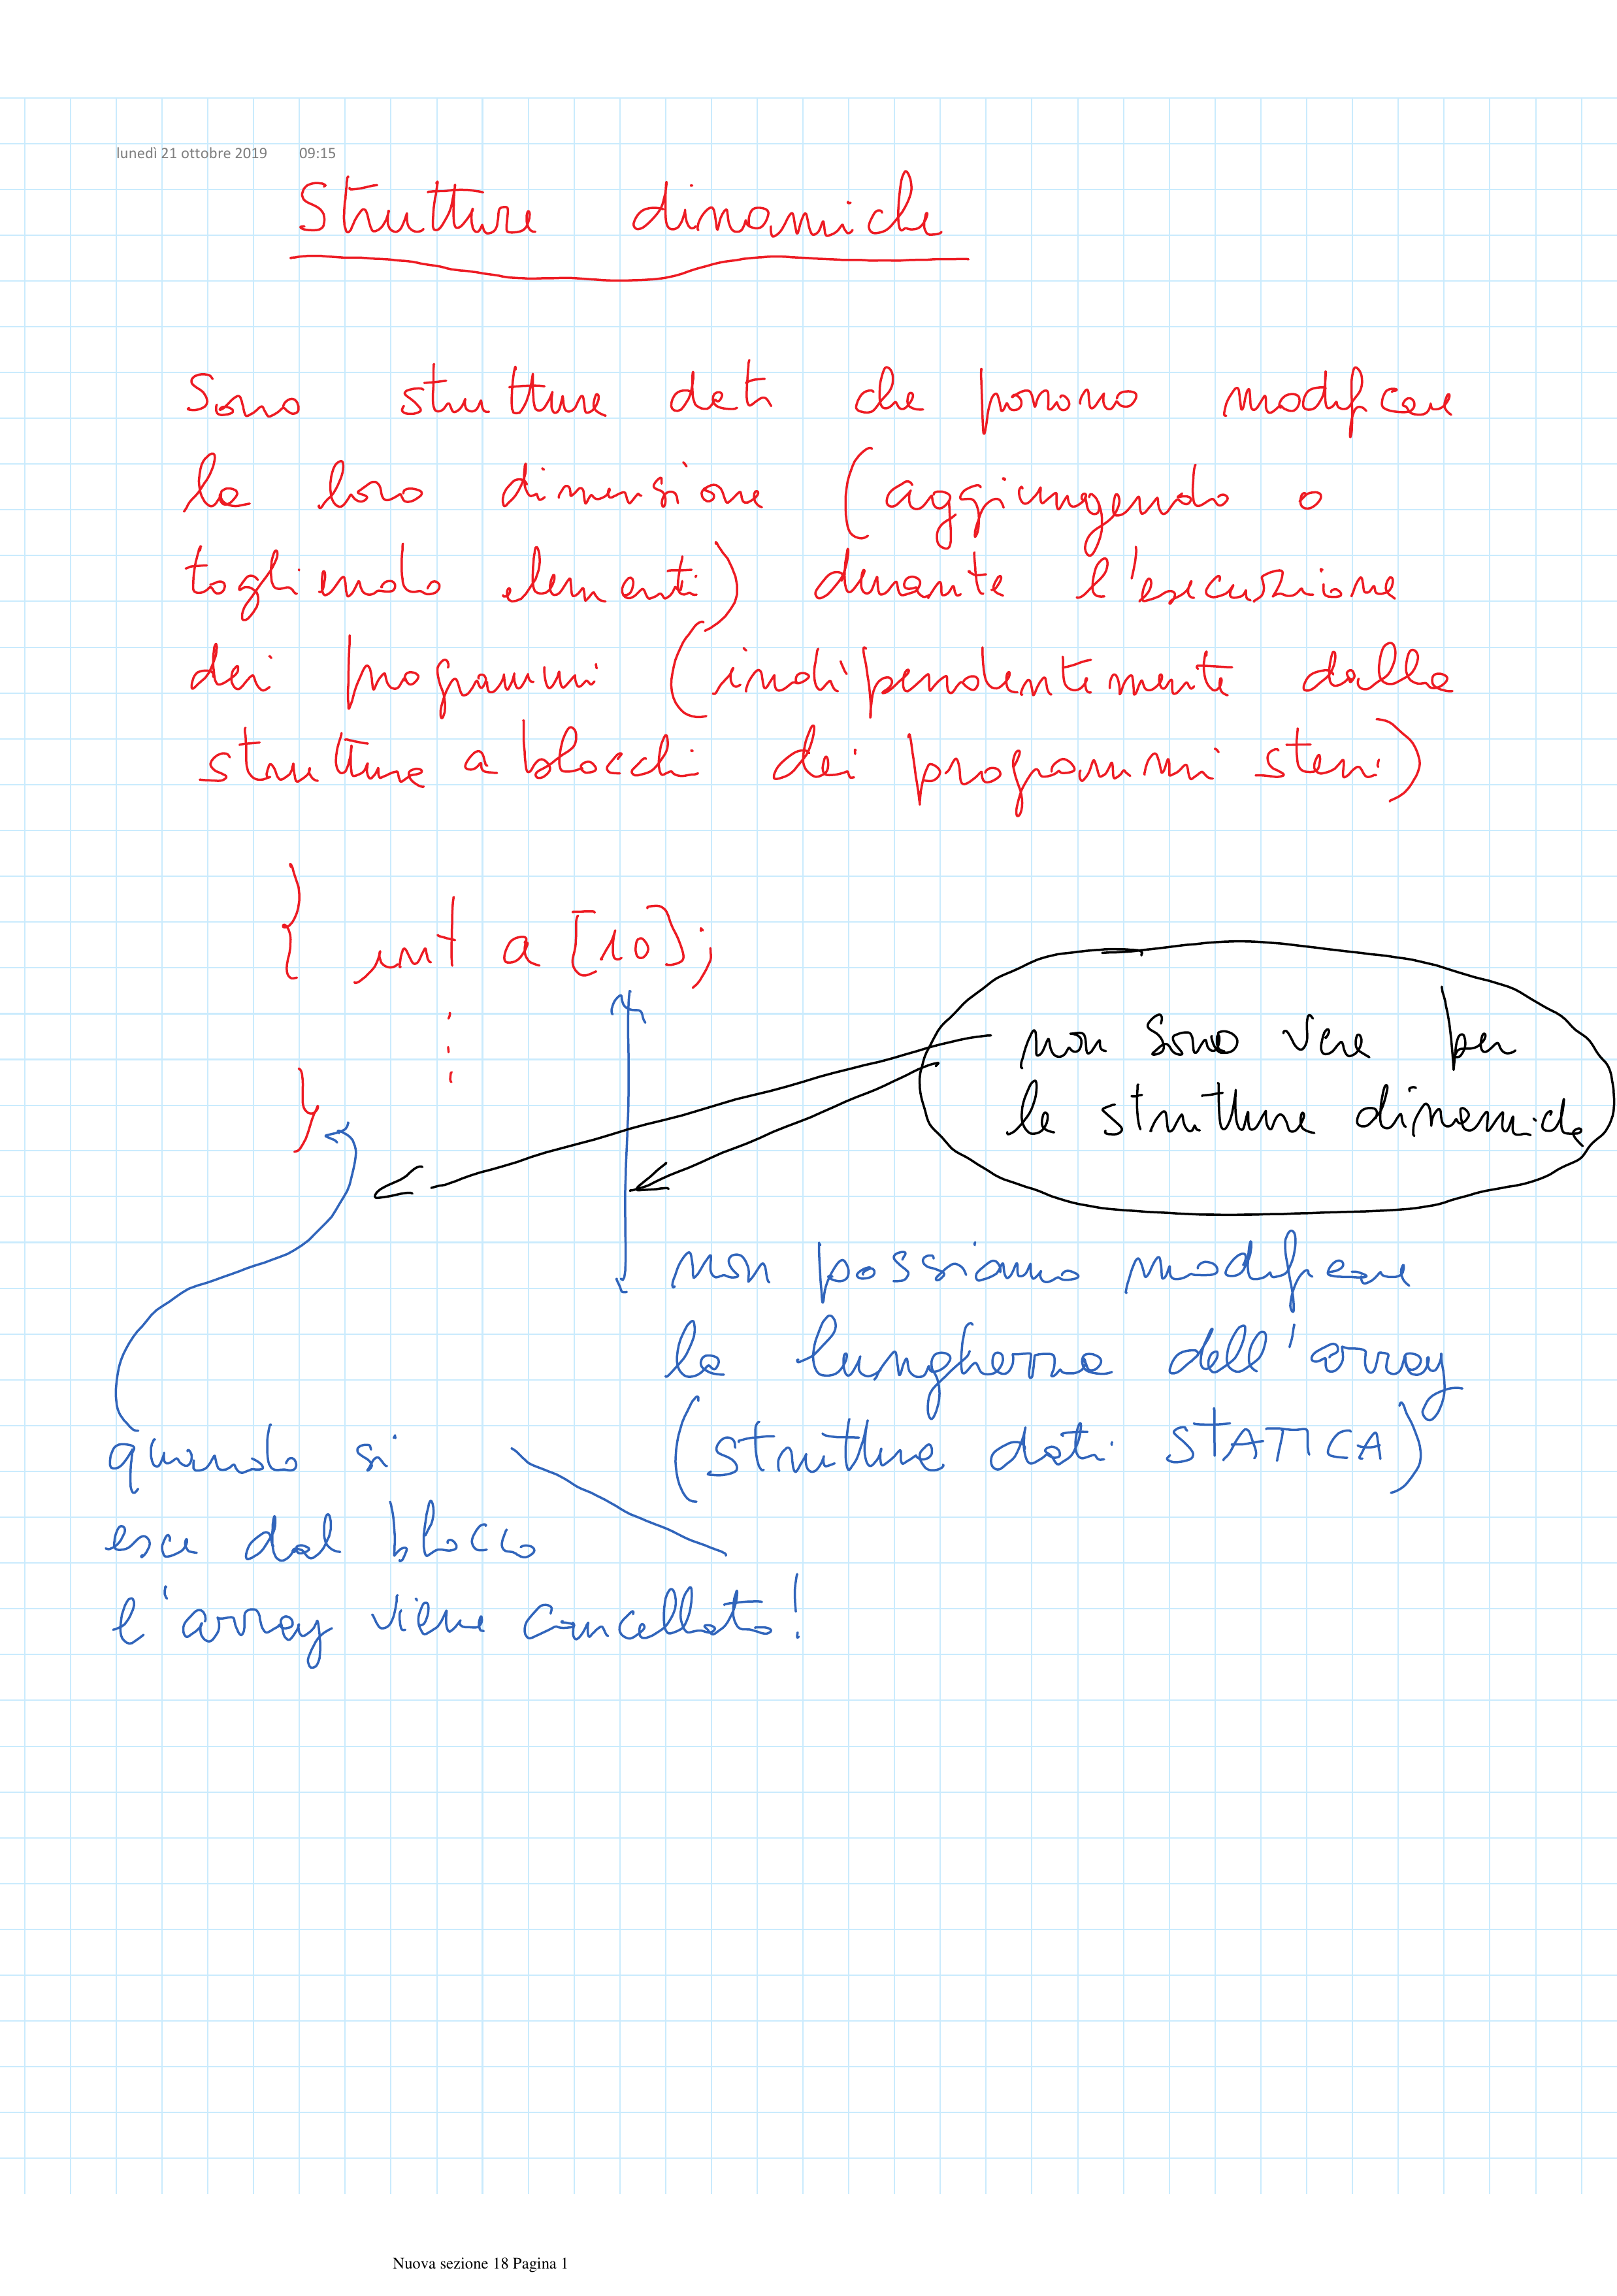 lunedì 21 ottobre 2019 09:15
Strutture dinamiche
Sono strutture dati che possono modificare
la loro dimensione (aggiungendo o
togliendo elementi) durante l'esecuzione
dei programmi (indipendentemente dalla
struttura a blocchi dei programmi stessi)
{ int a [10];
⋮
}
non sono vere per
le strutture dinamiche
non possiamo modificare
la lunghezza dell'array
(struttura dati STATICA)
quando si
esce dal blocco
l'array viene cancellato!
Nuova sezione 18 Pagina 1